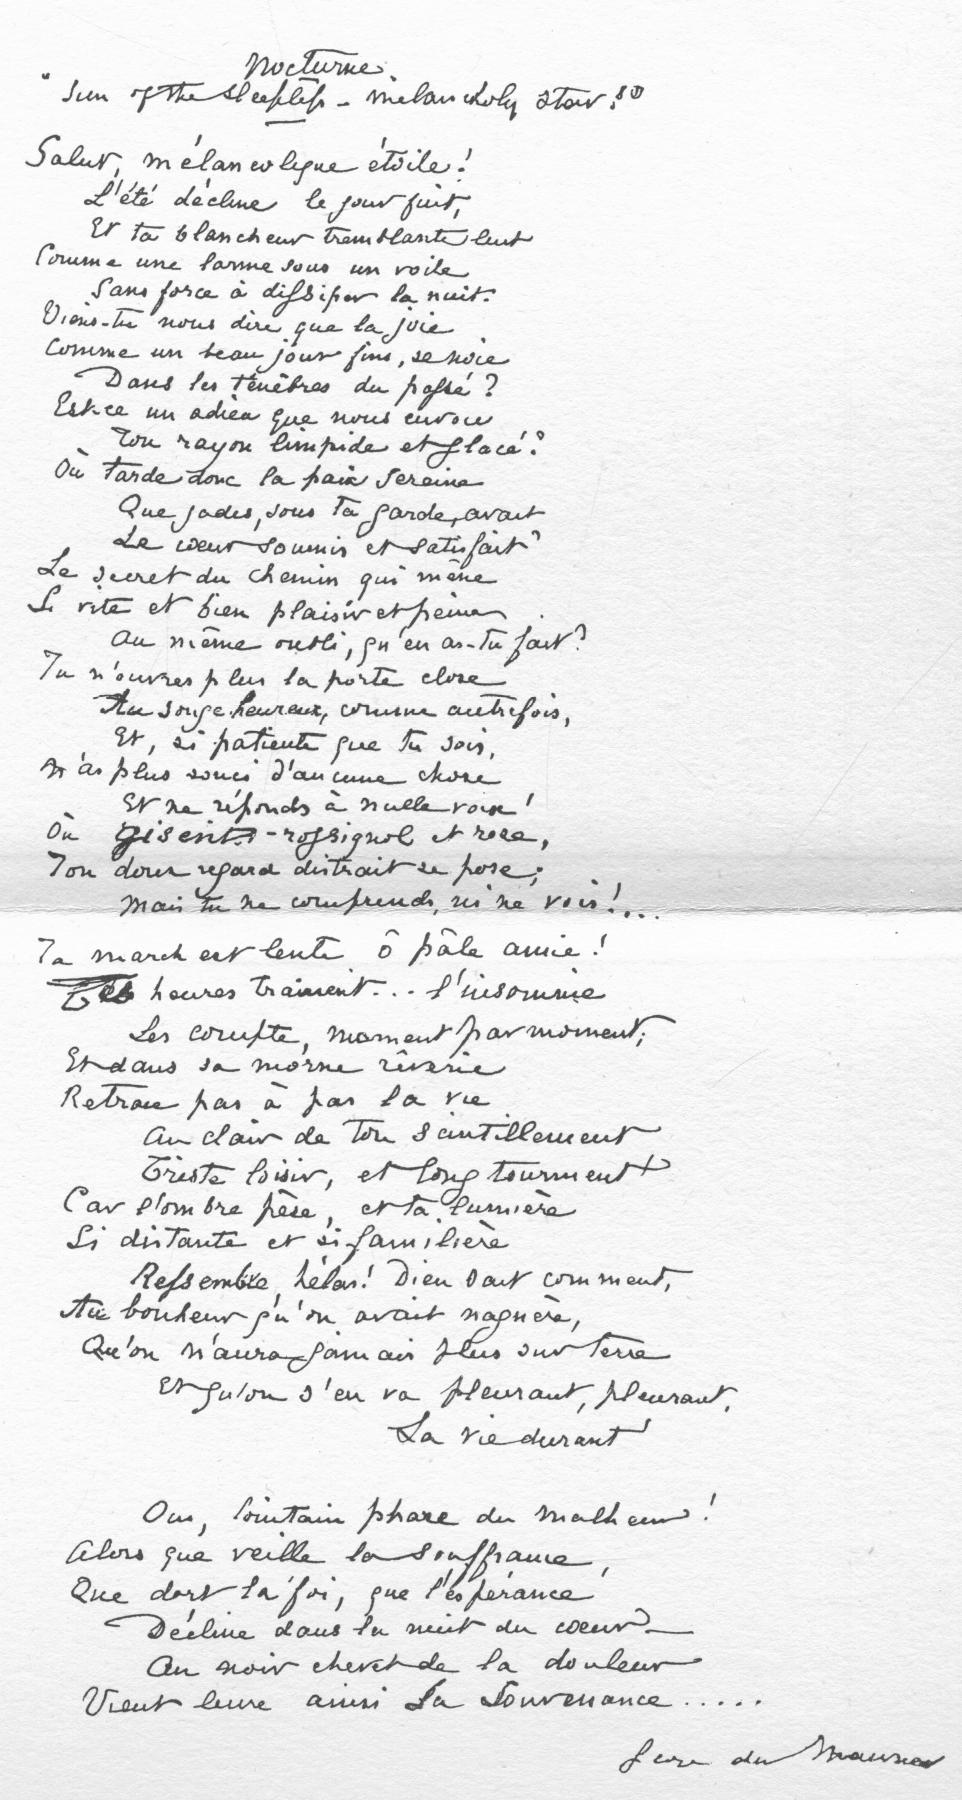 Nocturne.
"Sun of the sleepless - melancholy star!"
Salut, mélancolique étoile!
L'été décline le jour fuit,
Et ta blancheur tremblante luit
Comme une larme sous un voile
Sans force à dissiper la nuit.
Viens-tu nous dire que la joie
Comme un beau jour fini, se noie
Dans les ténèbres du passé?
Est-ce un adieu que nous envoie
Ton rayon limpide et glacé?
Où tarde donc la paix sereine
Que jadis, sous ta garde, avait
Le cœur soumis et satisfait?
Le secret du chemin qui mène
Si vite et bien plaisir et peine
Au même oubli, qu'en as-tu fait?
Tu n'ouvres plus la porte close
Au songe heureux, comme autrefois,
Et, si patiente que tu sois,
N'as plus souci d'aucune chose
Et ne réponds à nulle voix!
Où gisent - rossignol et rose,
Ton doux regard distrait se pose;
Mais tu ne comprends, ni ne vois!...
Ta march est lente ô pâle amie!
Les heures trainent... l'insomnie
Les compte, moment par moment;
Et dans sa morne rêverie
Retrace pas à pas la vie
Au clair de ton scintillement
Triste loisir, et long tourment
Car l'ombre pèse, et ta lumière
Si distante et si familière
Ressemble, hélas! Dieu sait comment,
Au bonheur qu'on avait naguère,
Qu'on n'aura jamais plus sur terre
Et qu'on s'en va pleurant, pleurant,
La vie durant!
Oui, lointain phare du malheur!
Alors que veille la souffrance,
Que dort la foi, que l'espérance
Décline dans la nuit du cœur -
Au noir chevet de la douleur
Vient luire ainsi La Souvenance.....
du Maurier